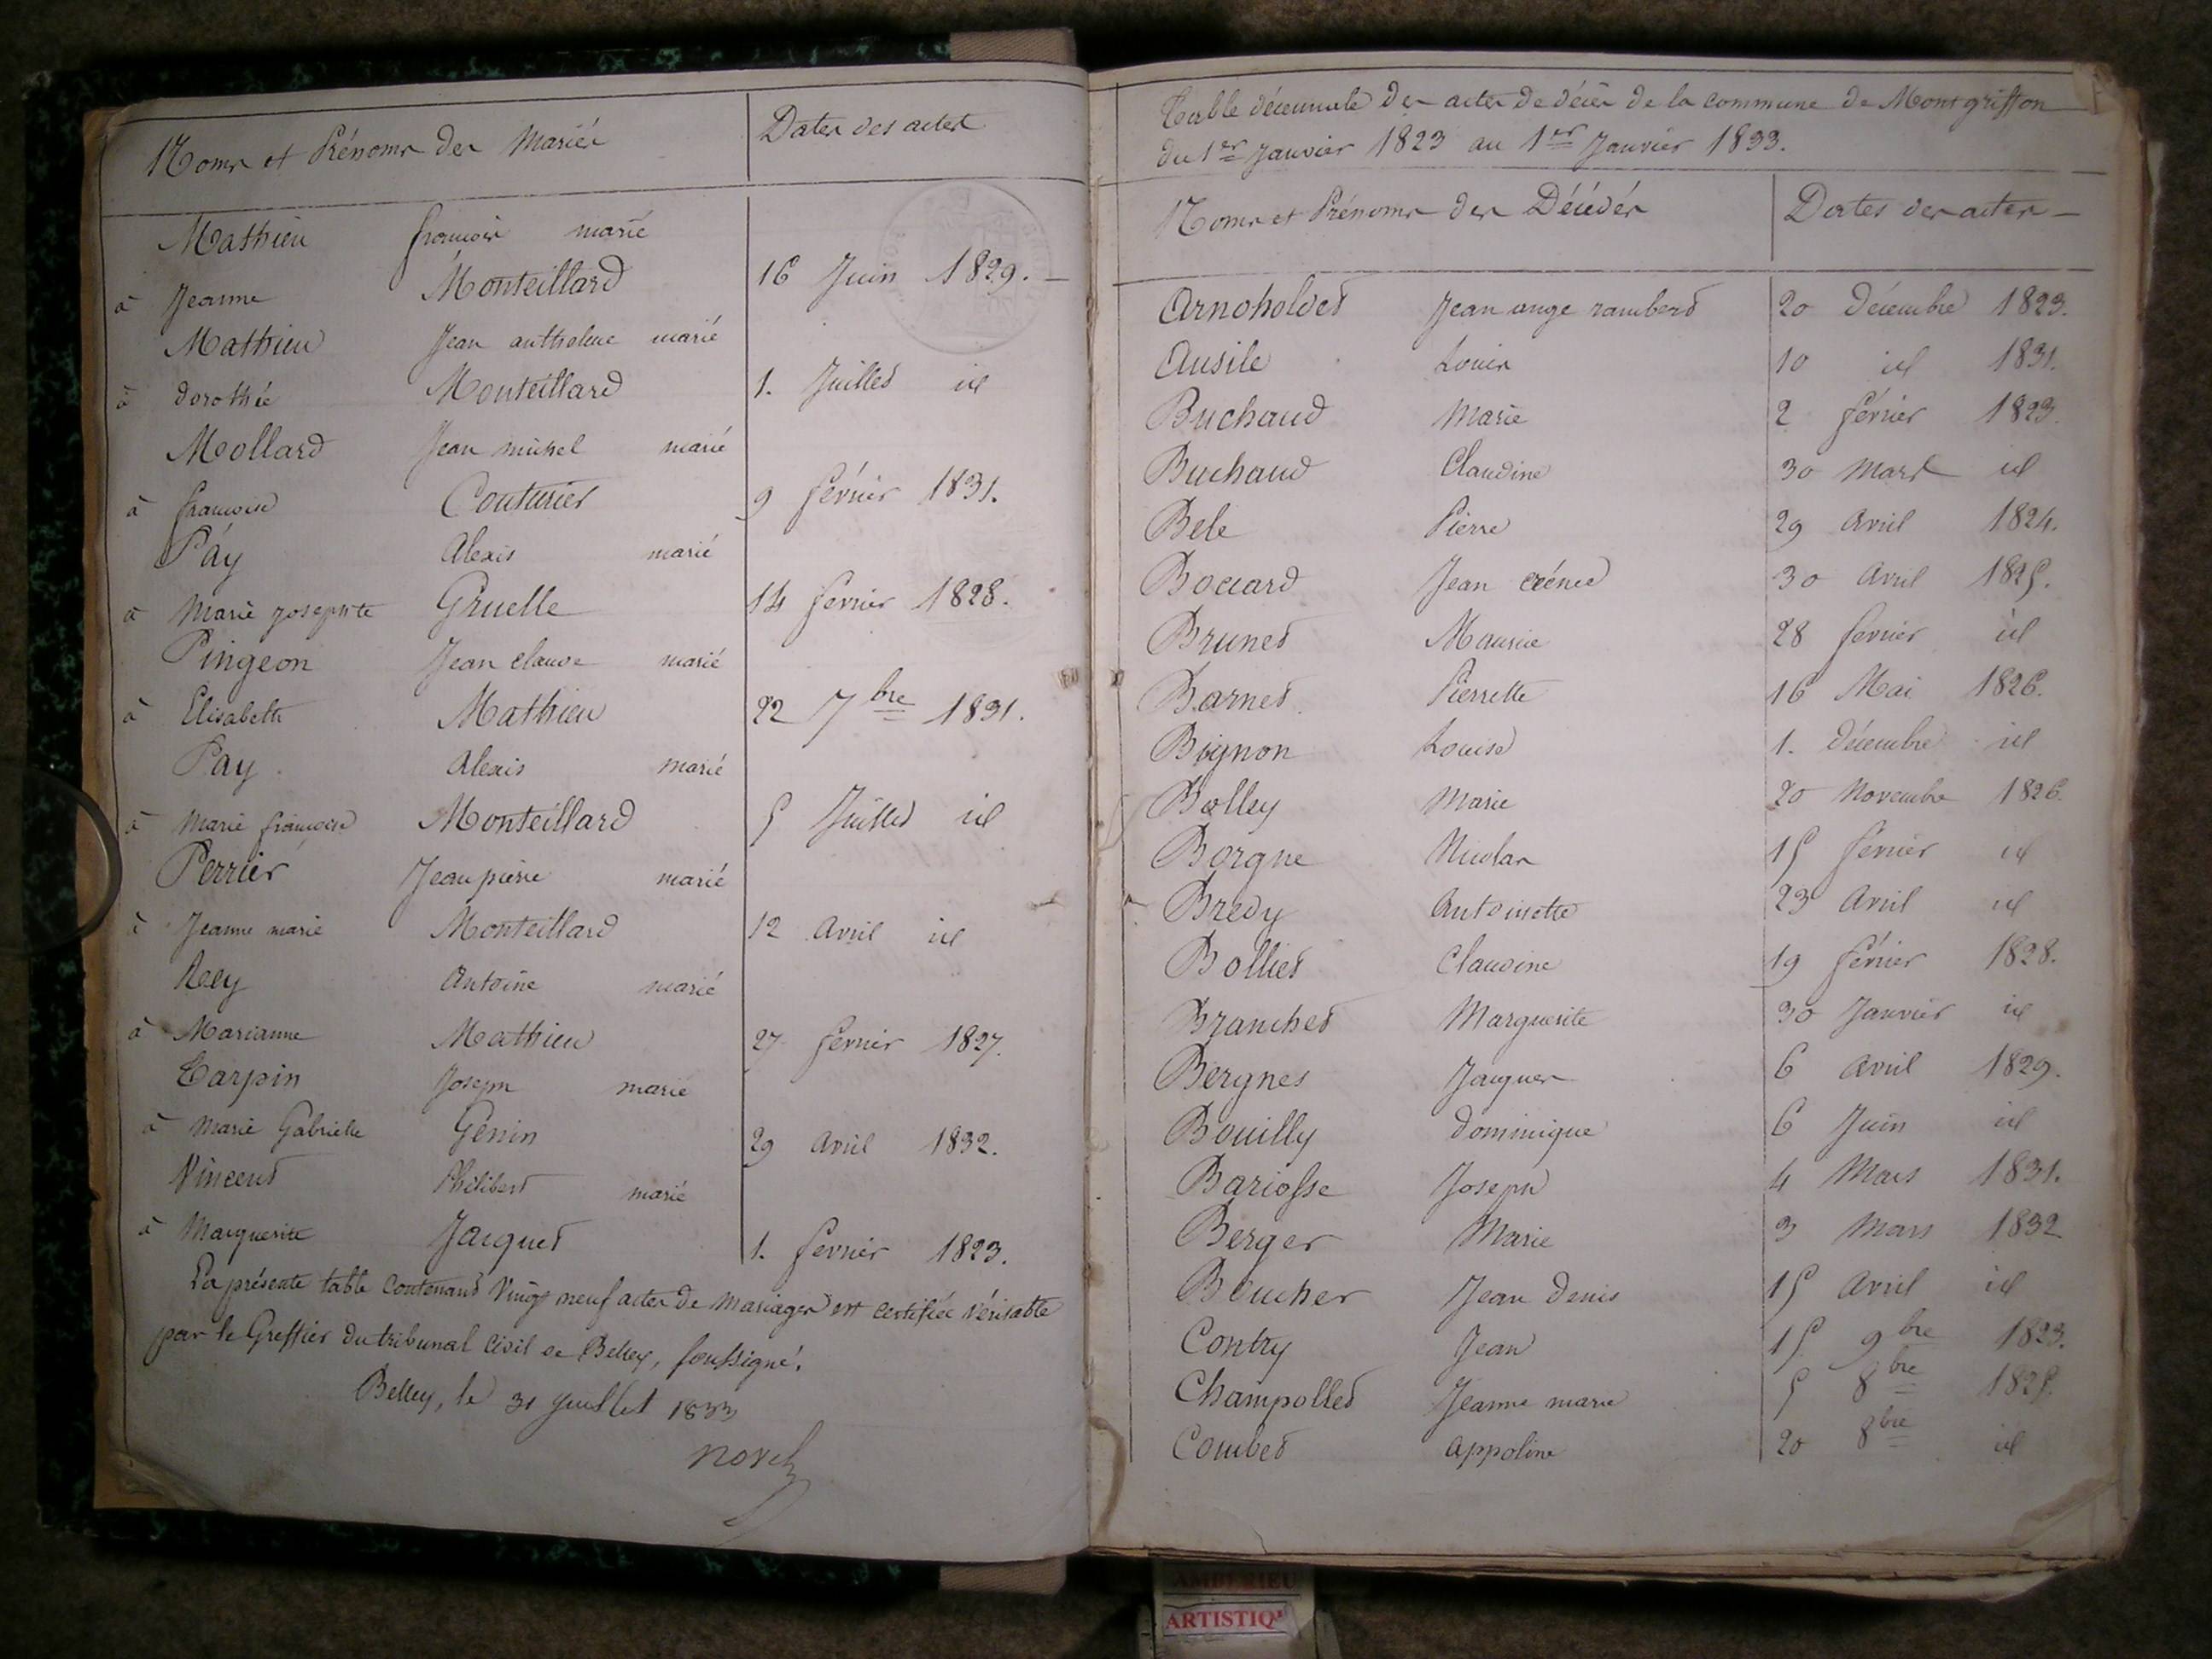 Noms et Prénoms des Mariés Dates des actes
Mathieu françois marié
à Jeanne Monteillard 16 Juin 1829. —
Mathieu Jean anthelme marié
à dorothée Monteillard 1. Juillet id
Mollard Jean michel marié
à françoise Couturier 9 février 1831.
Páy Alexis marié
à Marie josephte Gruelle 14 fevrier 1828.
Pingeon Jean claude marié
à Elisabeth Mathieu 22 7bre 1831.
Pay Alexis marié
à Marie françoise Monteillard 5 Juillet id
Perrier Jean pierre marié
à Jeanne marie Monteillard 12 Avril id
Rey Antoine marié
à Marianne Mathieu 27 février 1827.
Tarpin Joseph marié
à Marie Gabrielle Genin 29 Avril 1832.
Vincent Philibert marié
à Marguerite Jacquet 1. fevrier 1823.
La présente table contenant Vingt neuf actes de Mariages est certifiée véritable
par le Greffier du tribunal Civil de Belley, soussigné.
Belley, le 31 juillet 1833
Table décennale des actes de décès de la commune de Montgriffon
du 1er Janvier 1823 au 1er Janvier 1833.
Noms et Prénoms des Décédés Dates des actes —
Arnoholdet Jean ange rambert 20 décembre 1823.
Ausile Louis 10 id 1831.
Buchaud Marie 2 février 1823.
Buchaud Claudine 30 Mars id
Bele Pierre 29 Avril 1824.
Boccard Jean 30 Avril 1825.
Brunet Maurice 28 fevrier id
Barnet Pierrette 16 Mai 1826.
Bognon Louise 1. décembre id
Bolley Marie 20 Novembre 1826.
Borgne Nicolas 15 février id
Bredy Antoinette 23 Avril id
Bolliet Claudine 19 février 1828.
Branchet Marguerite 30 Janvier id
Bergnes Jacques 6 Avril 1829.
Bouilly Dominique 6 Juin id
Bariosse Joseph 4 Mars 1831.
Berger Marie 3 Mars 1832
Boucher Jean Denis 15 Avril id
Contry Jean 15 9bre 1823.
Champollet Jeanne marie 5 8bre 1825.
Combet Appoline 20 8bre id
AMBERIEU
ARTISTIQ